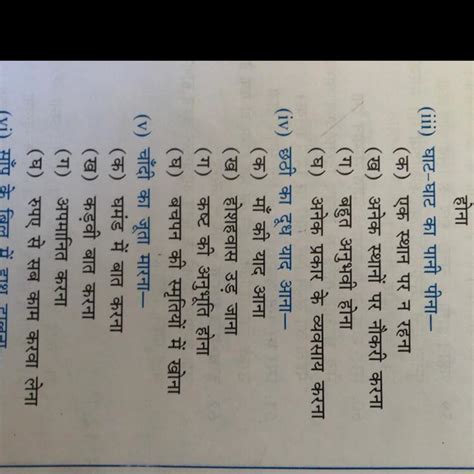 होना
(iii) घाट-घाट का पानी पीना—
(क) एक स्थान पर न रहना
(ख) अनेक स्थानों पर नौकरी करना
(ग) बहुत अनुभवी होना
(घ) अनेक प्रकार के व्यवसाय करना
(iv) छठी का दूध याद आना—
(क) माँ की याद आना
(ख) होशहवास उड़ जाना
(ग) कष्ट की अनुभूति होना
(घ) बचपन की स्मृतियों में खोना
(v) चाँदी का जूता मारना—
(क) घमंड में बात करना
(ख) कड़वी बात करना
(ग) अपमानित करना
(घ) रुपए से सब काम करवा लेना
(vi) साँप के बिल में हाथ डालना